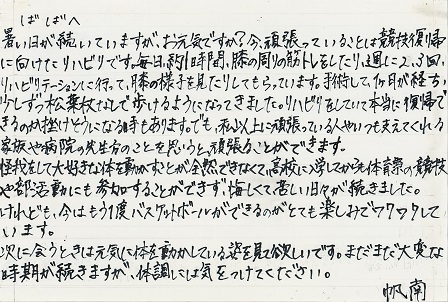 ばばへ
暑い日が続いていますが、お元気ですか？今、頑張っていることは競技復帰
に向けたリハビリです。毎日、約1時間、膝の周りの筋トレをしたり、週に2、3回、
リハビリテーションに行って、膝の様子を見たりしてもらっています。手術して、1ヶ月が経ち、
少しずつ松葉杖なしで歩けるようになってきました。リハビリをしていて本当に復帰で
きるのか挫けそうになる時もあります。でも、私以上に頑張っている人やいつも支えてくれる
家族や病院の先生方のことを思うと、頑張ることができます。
怪我をして大好きな体を動かすことが全然できなくて、高校に入学してからも体育祭の競技
や部活動にも参加することができず悔しくて苦しい日々が続きました。
けれども、今はもう1度バスケットボールができるのがとても楽しみでワクワクして
います。
次に会うときは元気に体を動かしている姿を見て欲しいです。まだまだ大変な
時期が続きますが、体調には気をつけてください。
帆南